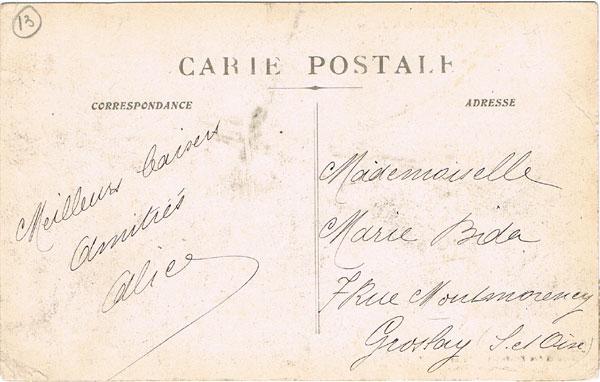 13
CARTE POSTALE
CORRESPONDANCE
ADRESSE
Meilleurs baisers
Amitiés
Alice
Mademoiselle
Marie Bida
7 Rue Montmorency
Groslay (S. et Oise)